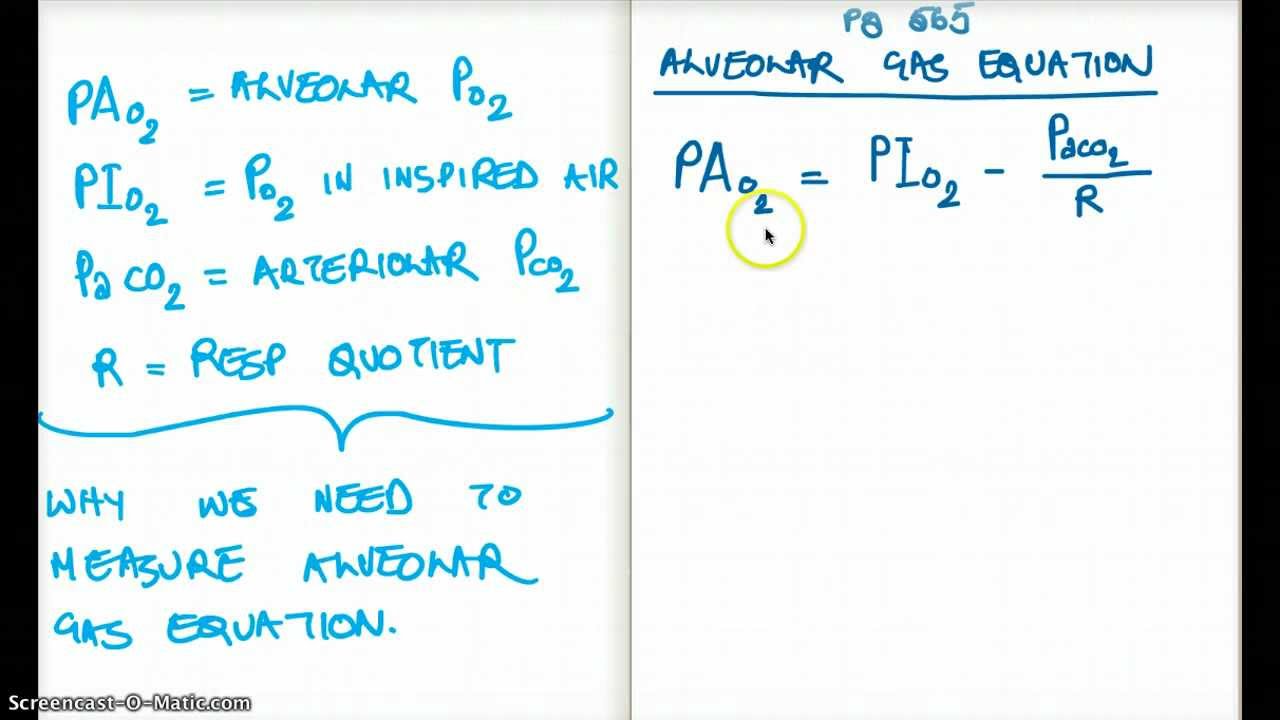 PAO₂ = ALVEOLAR PO₂
PIO₂ = PO₂ IN INSPIRED AIR
PaCO₂ = ARTERIOLAR PCO₂
R = RESP QUOTIENT
WHY WE NEED TO
MEASURE ALVEOLAR
GAS EQUATION.
PG 565
ALVEOLAR GAS EQUATION
PAO₂ = PIO₂ - PaCO₂/R
Screencast-O-Matic.com